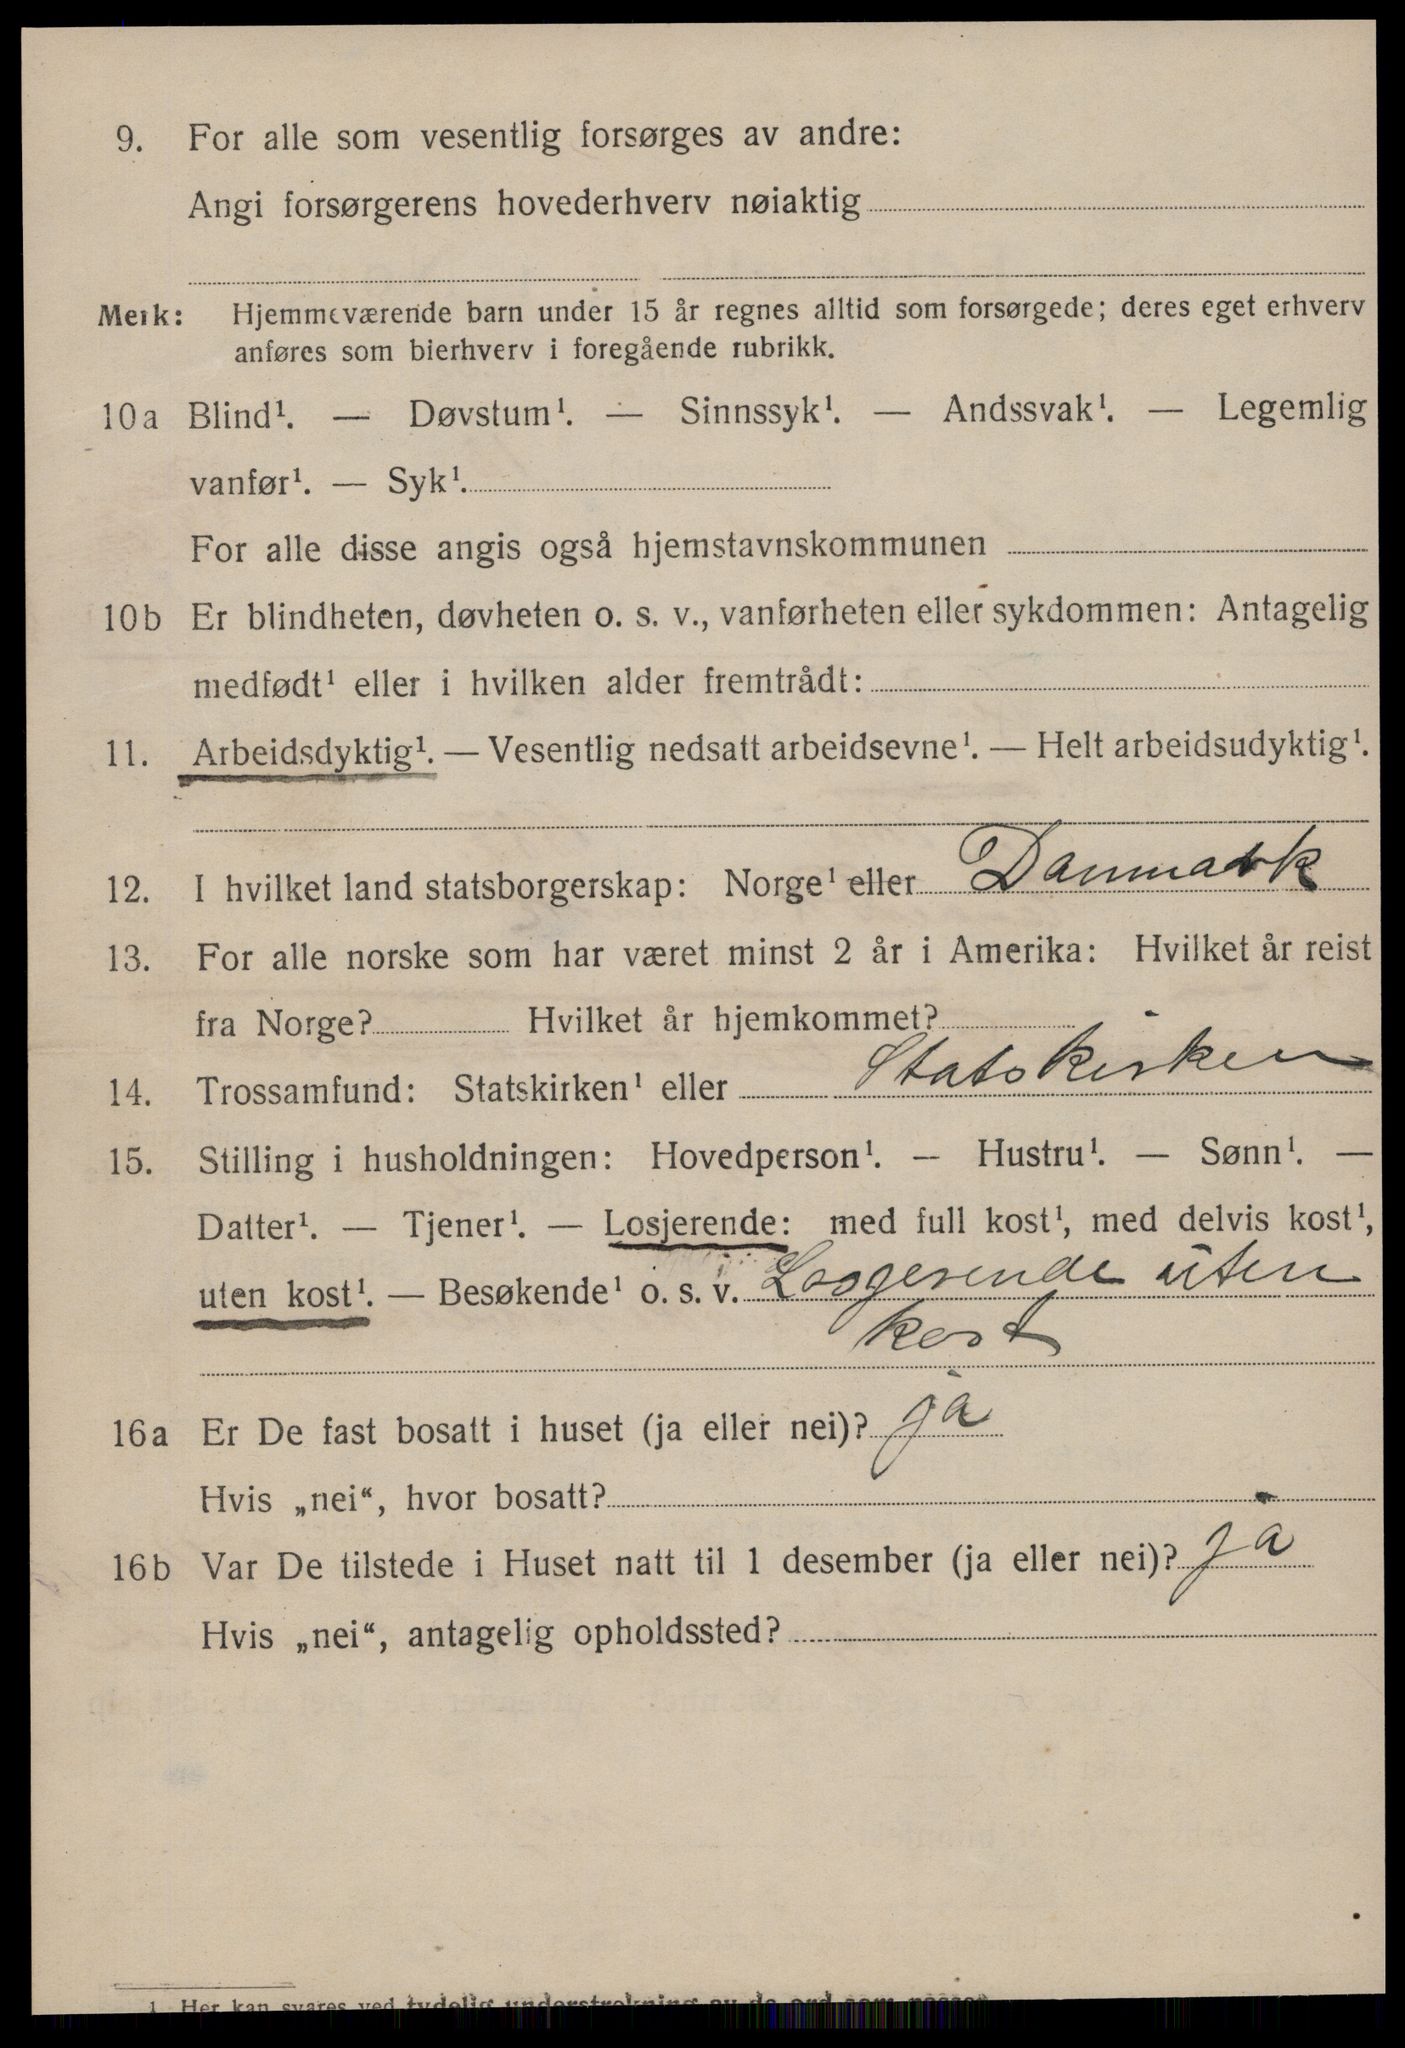 9. For alle som vesentlig forsørges av andre:
Angi forsørgerens hovederhverv nøiaktig
Merk: Hjemmeværende barn under 15 år regnes alltid som forsørgede; deres eget erhverv
anføres som bierhverv i foregående rubrikk.
10a Blind¹. — Døvstum¹. — Sinnssyk¹. — Andssvak¹. — Legemlig
vanfør¹. — Syk¹.
For alle disse angis også hjemstavnskommunen
10b Er blindheten, døvheten o. s. v., vanførheten eller sykdommen: Antagelig
medfødt¹ eller i hvilken alder fremtrådt:
11. Arbeidsdyktig¹. — Vesentlig nedsatt arbeidsevne¹. — Helt arbeidsudyktig¹.
12. I hvilket land statsborgerskap: Norge¹ eller Danmark
13. For alle norske som har været minst 2 år i Amerika: Hvilket år reist
fra Norge? Hvilket år hjemkommet?
14. Trossamfund: Statskirken¹ eller Statskirken
15. Stilling i husholdningen: Hovedperson¹. — Hustru¹. — Sønn¹. —
Datter¹. — Tjener¹. — Losjerende: med full kost¹, med delvis kost¹,
uten kost¹. — Besøkende¹ o. s. v. Logerende uten
kost
16a Er De fast bosatt i huset (ja eller nei)? ja
Hvis „nei“, hvor bosatt?
16b Var De tilstede i Huset natt til 1 desember (ja eller nei)? ja
Hvis „nei“, antagelig opholdssted?
1 Her kan svares ved tydelig understrekning av de ord som passer